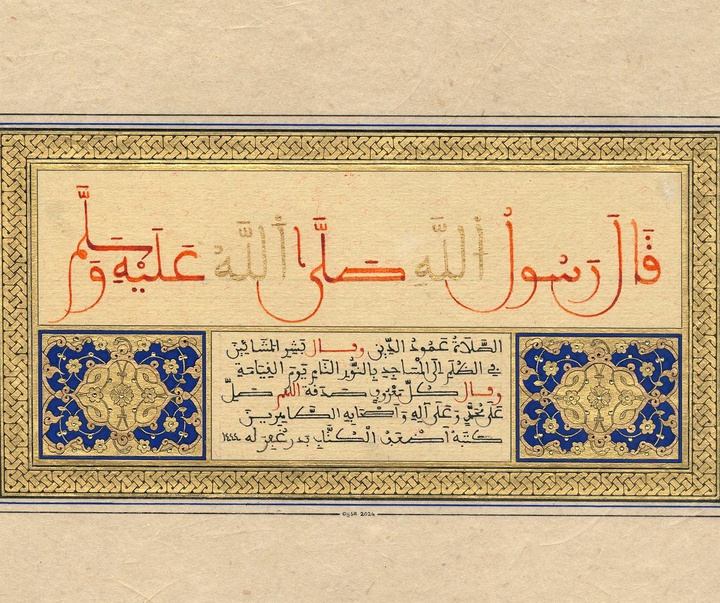 قَالَ رَسُولُ اللَّهِ صَلَّى اللَّهُ عَلَيْهِ وَسَلَّمَ
الصَّلَاةُ عَمُودُ الدِّينِ وقال بَشِّرِ المَشَّائِينَ
فِي الظُّلَمِ إِلَى الْمَسَاجِدِ بِالنُّورِ التَّامِ يَوْمَ القِيَامَةِ
وقال كُلُّ مَعْرُوفٍ صَدَقَة اللهم صَلِّ
عَلَى مُحَمَّدٍ وَعَلَى آلِهِ وَأَصْحَابِهِ الطَّاهِرِينَ
كَتَبَهُ أَضْعَفُ الْكُتَّابِ بدر غُفِرَ لَه ١٤٤٤
2024